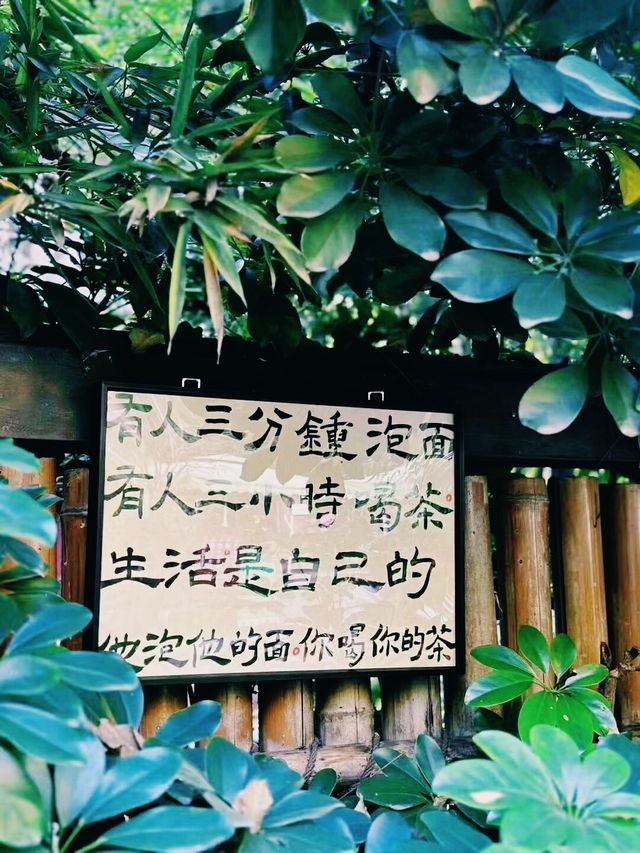 有人三分鍾泡面
有人三小時喝茶
生活是自己的
他泡他的面。你喝你的茶